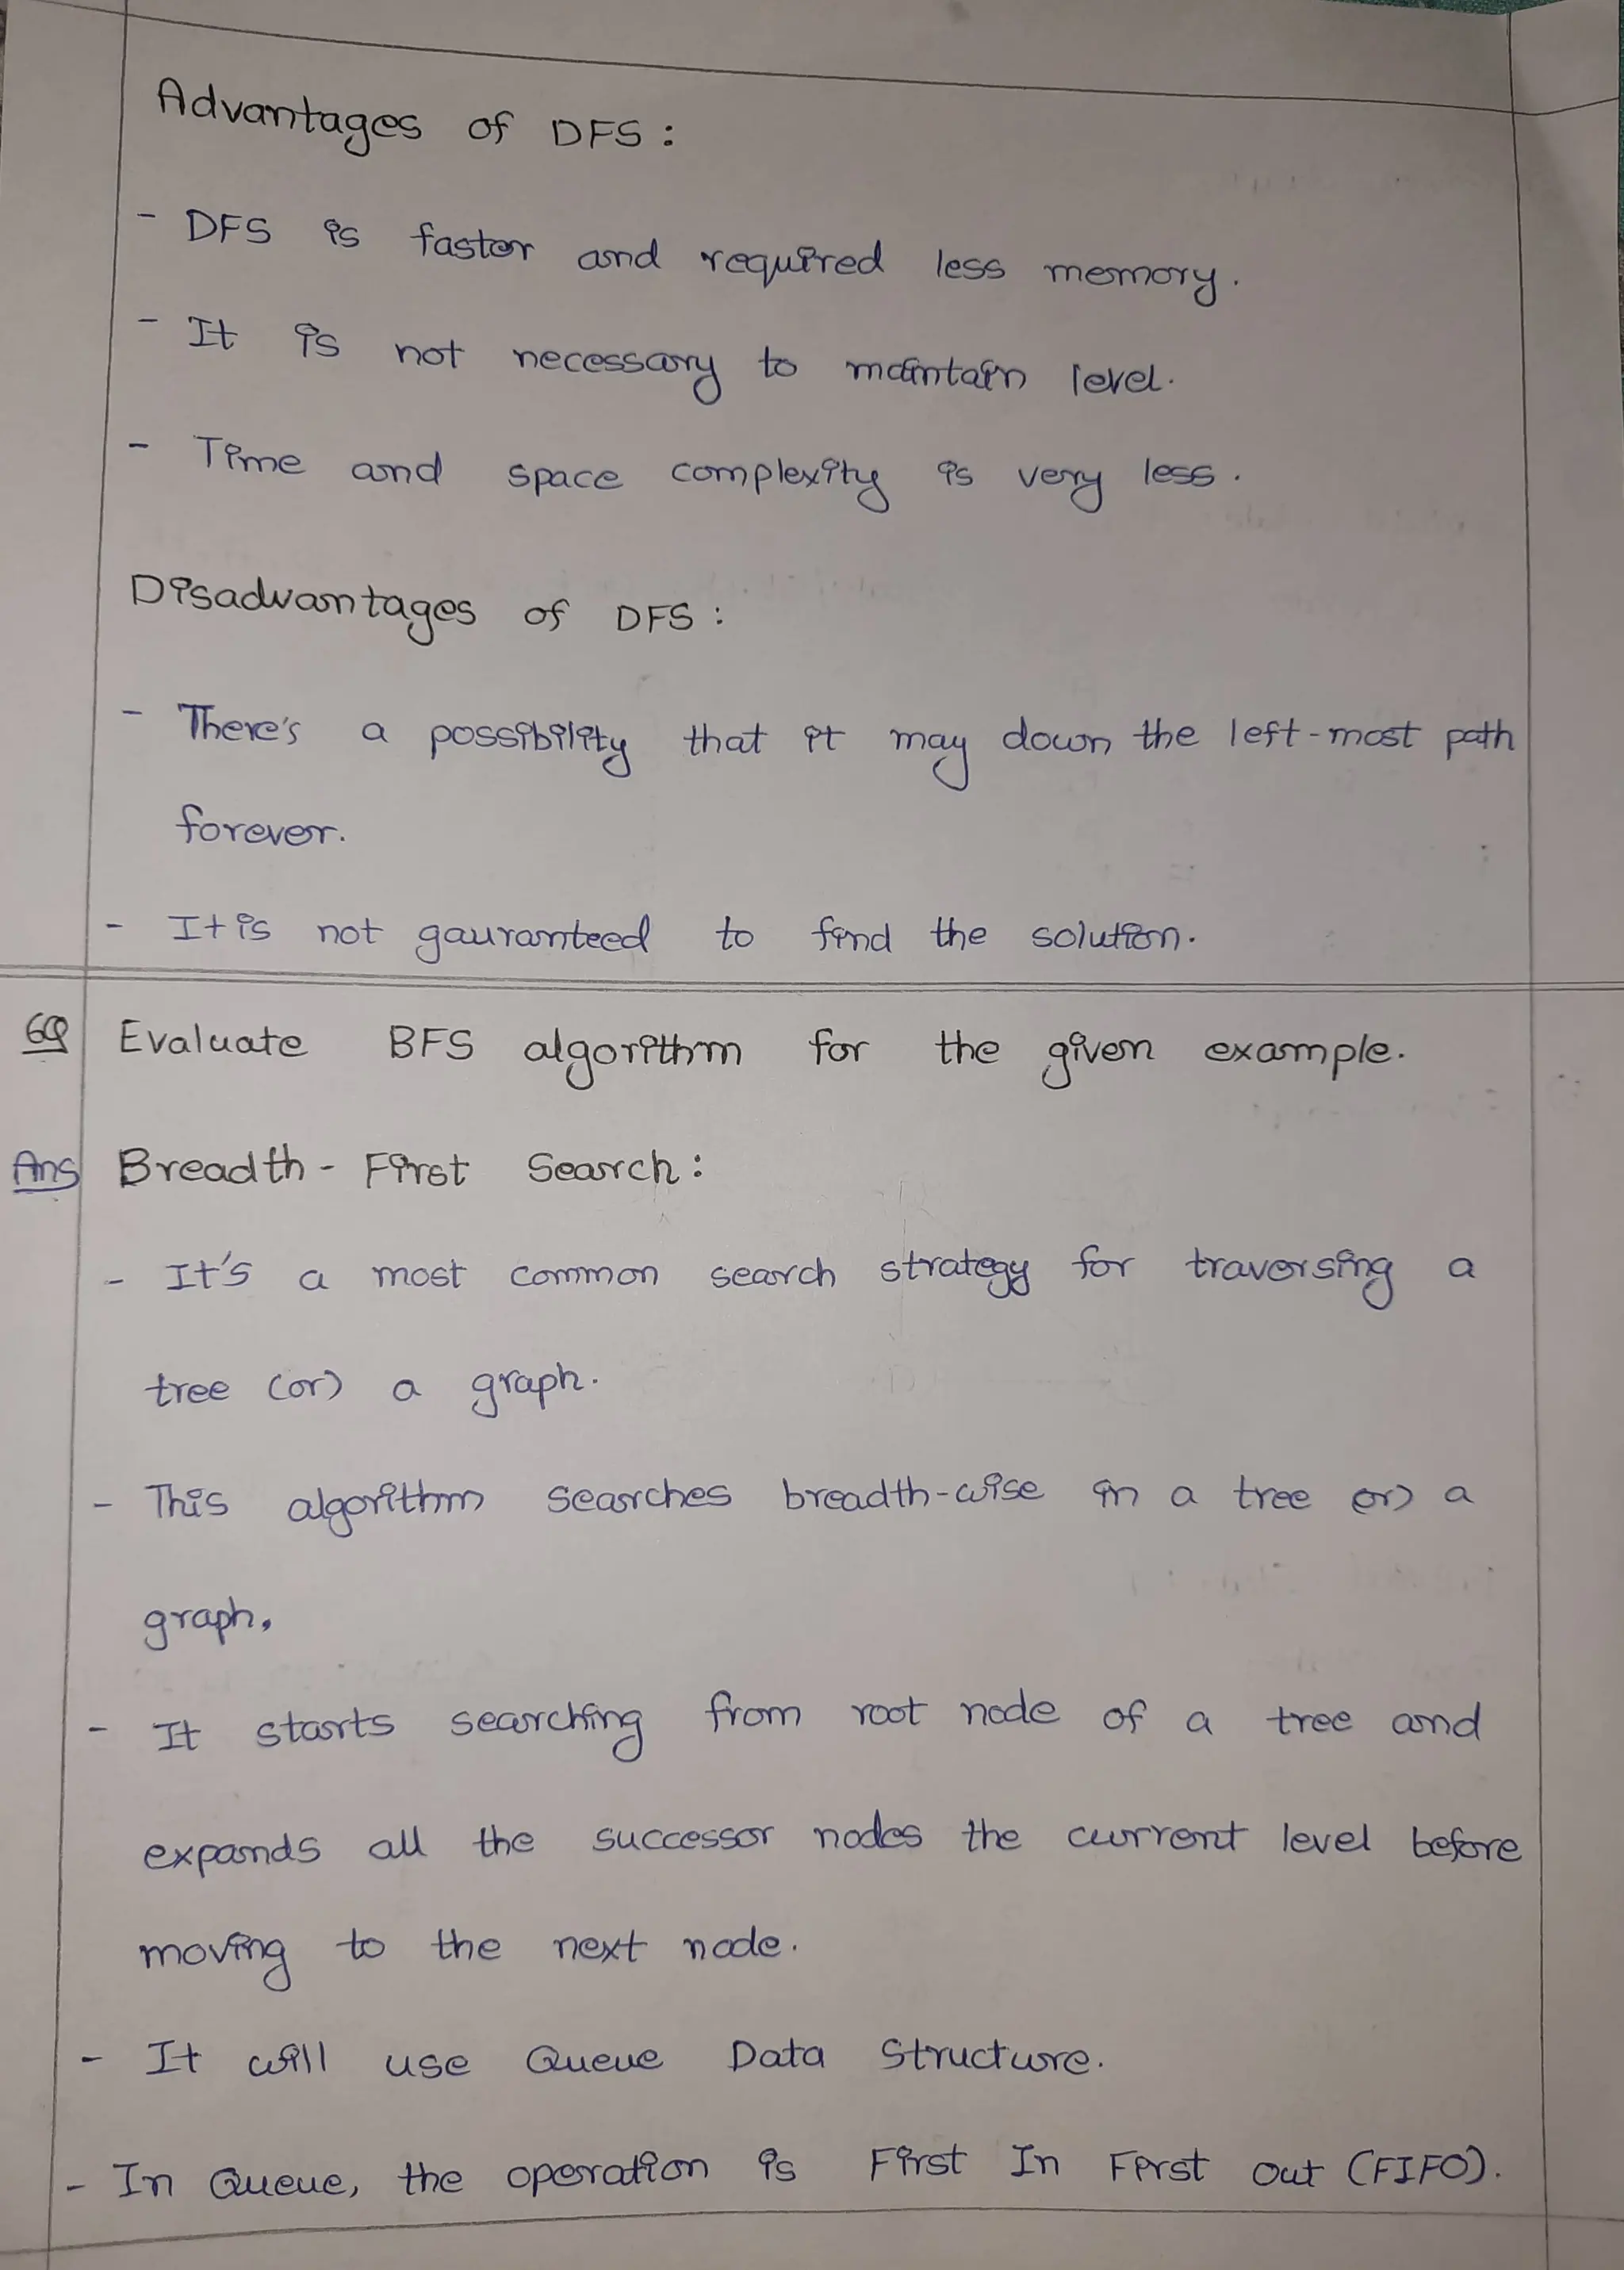 Advantages of DFS :
- DFS is faster and required less memory.
- It is not necessary to maintain level.
- Time and space complexity is very less.
Disadvantages of DFS :
- There's a possibility that it may down the left-most path
forever.
- It is not gauranteed to find the solution.
6Q Evaluate BFS algorithm for the given example.
Ans Breadth - First Search :
- It's a most common search strategy for traversing a
tree (or) a graph.
- This algorithm searches breadth-wise in a tree or) a
graph.
- It starts searching from root node of a tree and
expands all the successor nodes the current level before
moving to the next node.
- It will use Queue Data Structure.
- In Queue, the operation is First In First Out (FIFO).